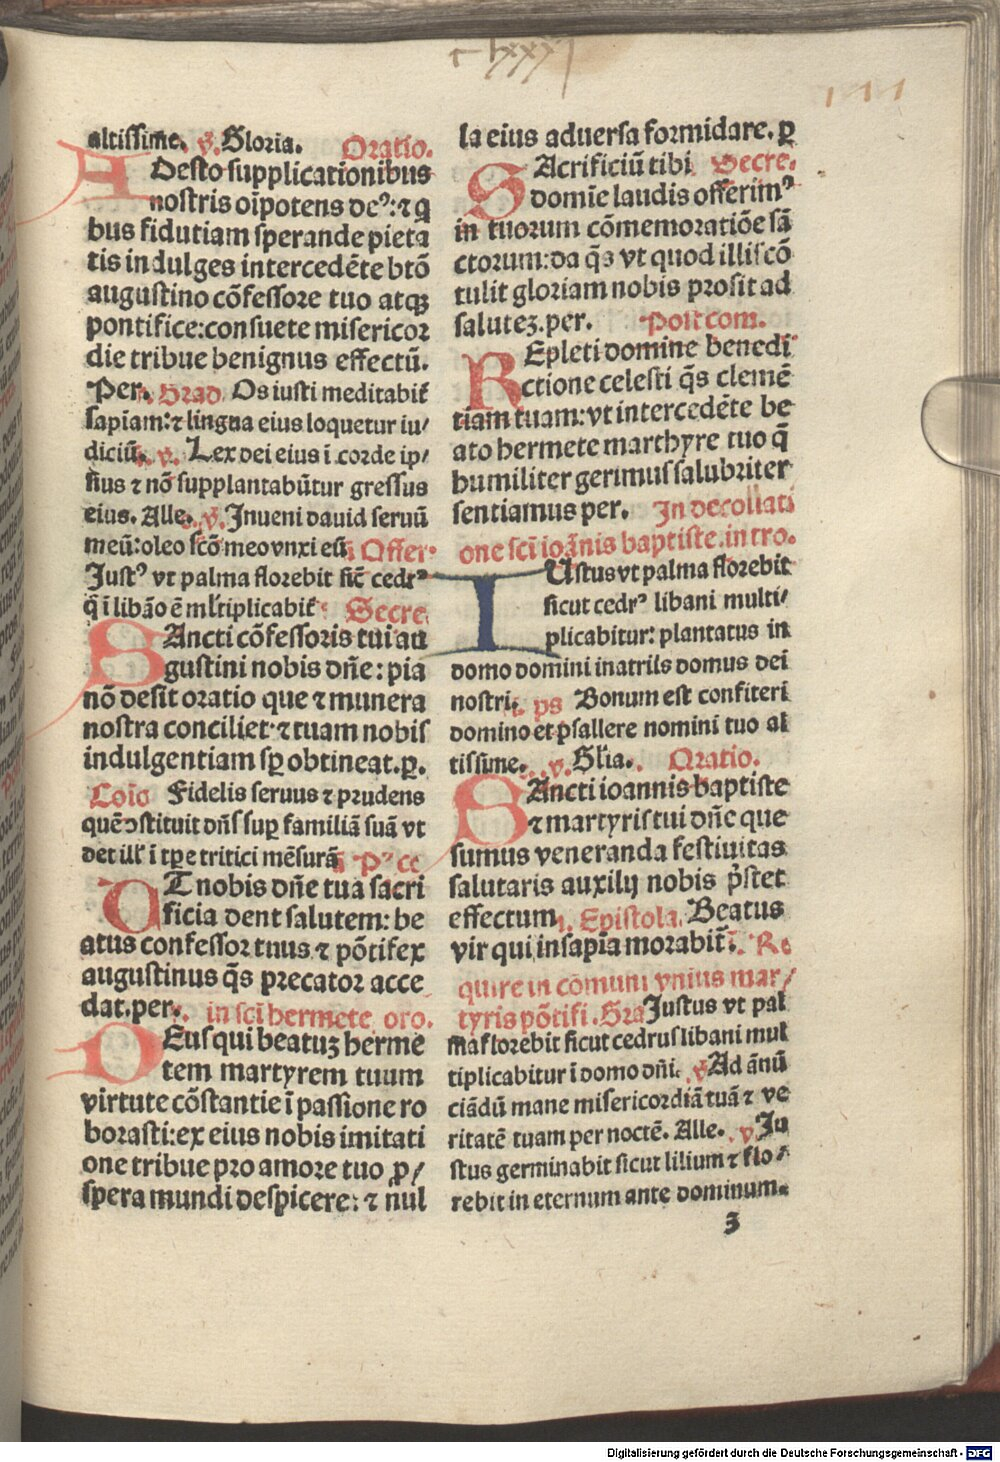 clxxxj
altissime. v. Gloria. Oratio.
ADesto supplicationibus
nostris oīpotens deꝰ: ⁊ q
bus fidutiam sperande pieta
tis indulges intercedēte btō
augustino cōfessore tuo atqꝫ
pontifice: consuete misericor
die tribue benignus effectū.
Per. Grad Os iusti meditabit̄
sapiam: ⁊ lingua eius loquetur iu/
diciū. v. Lex dei eius ī corde ip/
sius ⁊ nō supplantabūtur gressus
eius. Alle. v. Inueni dauid seruū
meū: oleo scō meo vnxi eū Offer
Justꝰ vt palma florebit sic̄ cedrꝰ
q̄ ī libāo ē ml̄tiplicabit̄ Secre
SAncti cōfessoris tui au
gustini nobis dn̄e: pia
nō desit oratio que ⁊ munera
nostra conciliet ⁊ tuam nobis
indulgentiam sꝑ obtineat. ꝑ.
Cōio Fidelis seruus ⁊ prudens
quē ↄstituit dn̄s suꝑ familiā suā vt
det ill' ī tꝑe tritici mēsurā Pꝰ cō
UT nobis dn̄e tua sacri
ficia dent salutem: be
atus confessor tuus ⁊ pōtifex
augustinus q̄s precator acce
dat. per. in sc̄i hermete oro.
DEus qui beatuꝫ herme
tem martyrem tuum
virtute cōstantie ī passione ro
borasti: ex eius nobis imitati
one tribue pro amore tuo ꝓ/
spera mundi despicere: ⁊ nul
la eius aduersa formidare. ꝑ
SAcrificiū tibi Secre.
domīe laudis offerimꝰ
in tuorum cōmemoratiōe sā
ctorum: da q̄s vt quod illis cō
tulit gloriam nobis prosit ad
saluteꝫ. per. Post com.
REpleti domine benedi
ctione celesti q̄s clemē
tiam tuam: vt intercedēte be
ato hermete marthyre tuo q̄
humiliter gerimus salubriter
sentiamus per. In decollati
one sc̄i ioānis baptiste. intro.
IUstus vt palma florebit
sicut cedrꝰ libani multi/
plicabitur: plantatus in
domo domini in atriis domus dei
nostri. ps Bonum est confiteri
domino et psallere nomini tuo al
tissime. v. Gl̄ia. Oratio.
SAncti ioannis baptiste
⁊ martyris tui dn̄e que
sumus veneranda festiuitas
salutaris auxilij nobis p̄stet
effectum. Epistola. Beatus
vir qui in sapīa morabit̄. Re
quire in comuni vnius mar/
tyris pōtifi. Gra Justus vt pal
ma florebit sicut cedrus libani mul
tiplicabitur ī domo dn̄i. v Ad ānū
ciādū mane misericordiā tuā ⁊ ve
ritatē tuam per noctē. Alle. v Ju
stus germinabit sicut lilium ⁊ flo
rebit in eternum ante dominum.
3
Digitalisierung gefördert durch die Deutsche Forschungsgemeinschaft - DFG